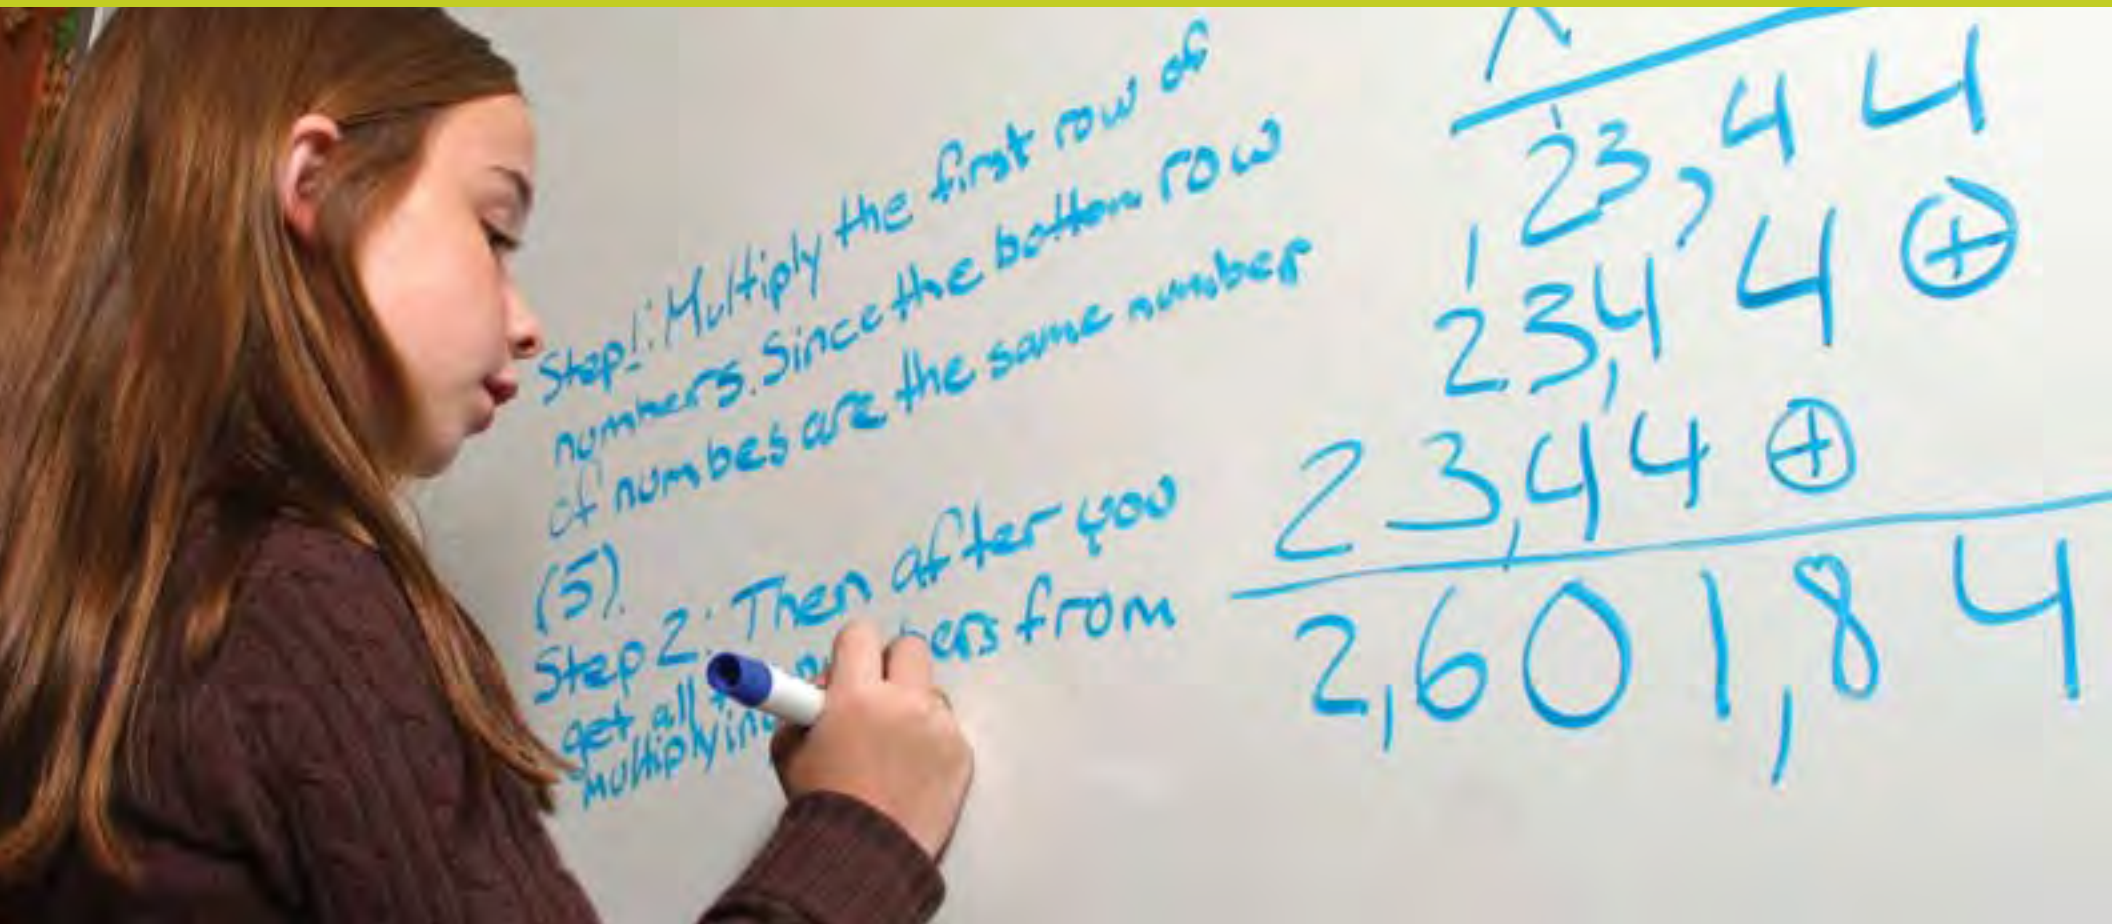 Step 1: Multiply the first row of
nummers. Since the bottom row
of numbes are the same number
(5).
Step 2: Then after you
get all from
multiplying
x
23,44
23,44 ⊕
23,44 ⊕
2,601,84